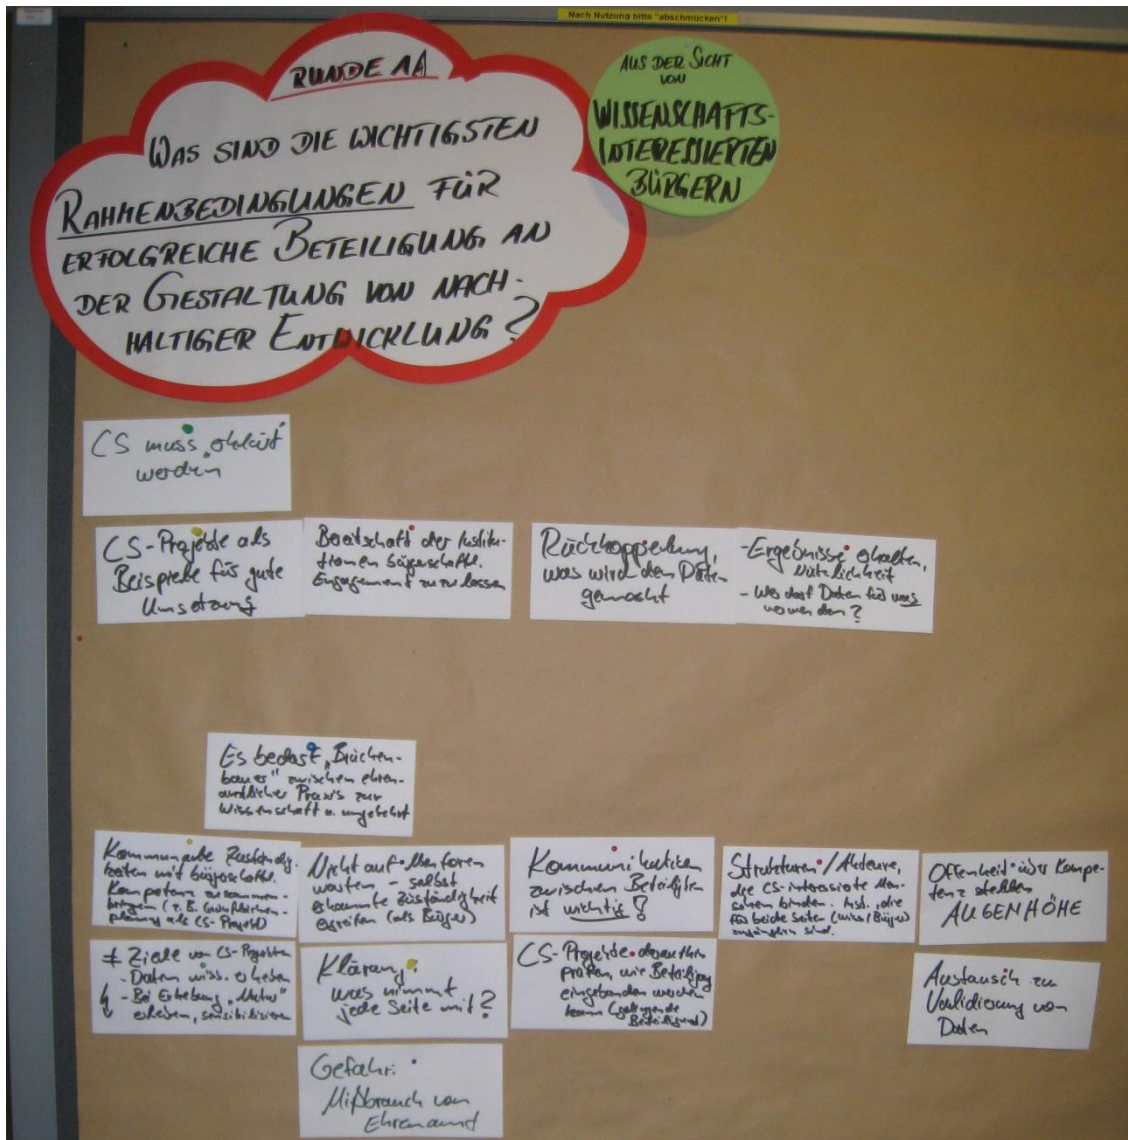 Nach Nutzung bitte "abschmücken"!
RUNDE 1A
WAS SIND DIE WICHTIGSTEN
RAHMENBEDINGUNGEN FÜR
ERFOLGREICHE BETEILIGUNG AN
DER GESTALTUNG VON NACH-
HALTIGER ENTWICKLUNG?
AUS DER SICHT
VON
WISSENSCHAFTS-
INTERESSIERTEN
BÜRGERN
CS muss „erklärt"
werden
CS-Projekte als
Beispiele für gute
Umsetzung
Bereitschaft der Institu-
tionen bürgerschaftl.
Engagement zuzulassen
Rückkoppelung,
was wird den Daten
gemacht
-Ergebnisse erhalten,
Nützlichkeit
- Wer darf Daten für was
verwenden?
Es bedarf „Brücken-
bauer" zwischen ehren-
amtlicher Praxis zur
Wissenschaft u. umgekehrt
Kommunale Zuständig-
keiten mit bürgerschaftl.
Kompetenz zusammen-
bringen (z.B. Grünflächen-
planung als CS-Projekt)
Nicht auf
warten - selbst
erkannte Zuständigkeit
ergreifen (als Bürger)
Kommunikation
zwischen Beteiligten
ist wichtig!
Strukturen / Akteure,
die CS-interessierte Men-
schen binden. Inst., die
für beide Seiten (Wiss/Bürger)
zugänglich sind.
Offenheit über Kompe-
tenz stellen
AUGENHÖHE
≠ Ziele von CS-Projekten
- Daten wiss. erheben
- Bei Erhebung „Natur"
erleben, sensibilisieren
Klärung:
was nimmt
jede Seite mit?
CS-Projekte daraufhin
prüfen wie Beteiligung
eingebunden werden
kann
Austausch zu
Validierung von
Daten
Gefahr:
Mißbrauch von
Ehrenamt